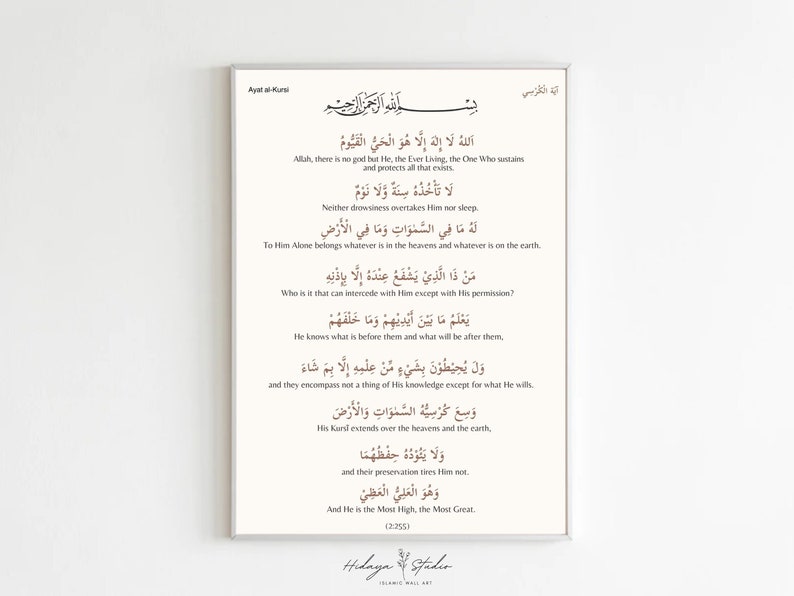 Ayat al-Kursi
آيَة الْكُرْسِي
بِسْمِ اللهِ الرَّحْمٰنِ الرَّحِيْمِ
اَللهُ لَا إِلٰهَ إِلَّا هُوَ الْحَيُّ الْقَيُّومُ
Allah, there is no god but He, the Ever Living, the One Who sustains
and protects all that exists.
لَا تَأْخُذُهُ سِنَةٌ وَّلَا نَوْمٌ
Neither drowsiness overtakes Him nor sleep.
لَهُ مَا فِي السَّمٰوَاتِ وَمَا فِي الْأَرْضِ
To Him Alone belongs whatever is in the heavens and whatever is on the earth.
مَنْ ذَا الَّذِيْ يَشْفَعُ عِنْدَهُ إِلَّا بِإِذْنِهِ
Who is it that can intercede with Him except with His permission?
يَعْلَمُ مَا بَيْنَ أَيْدِيْهِمْ وَمَا خَلْفَهُمْ
He knows what is before them and what will be after them,
وَلَ يُحِيْطُوْنَ بِشَيْءٍ مِّنْ عِلْمِهِ إِلَّا بِمَ شَاءَ
and they encompass not a thing of His knowledge except for what He wills.
وَسِعَ كُرْسِيُّهُ السَّمٰوَاتِ وَالْأَرْضَ
His Kursī extends over the heavens and the earth,
وَلَا يَئُوْدُهُ حِفْظُهُمَا
and their preservation tires Him not.
وَهُوَ الْعَلِيُّ الْعَظِيْ
And He is the Most High, the Most Great.
(2:255)
Hidaya Studio
ISLAMIC WALL ART